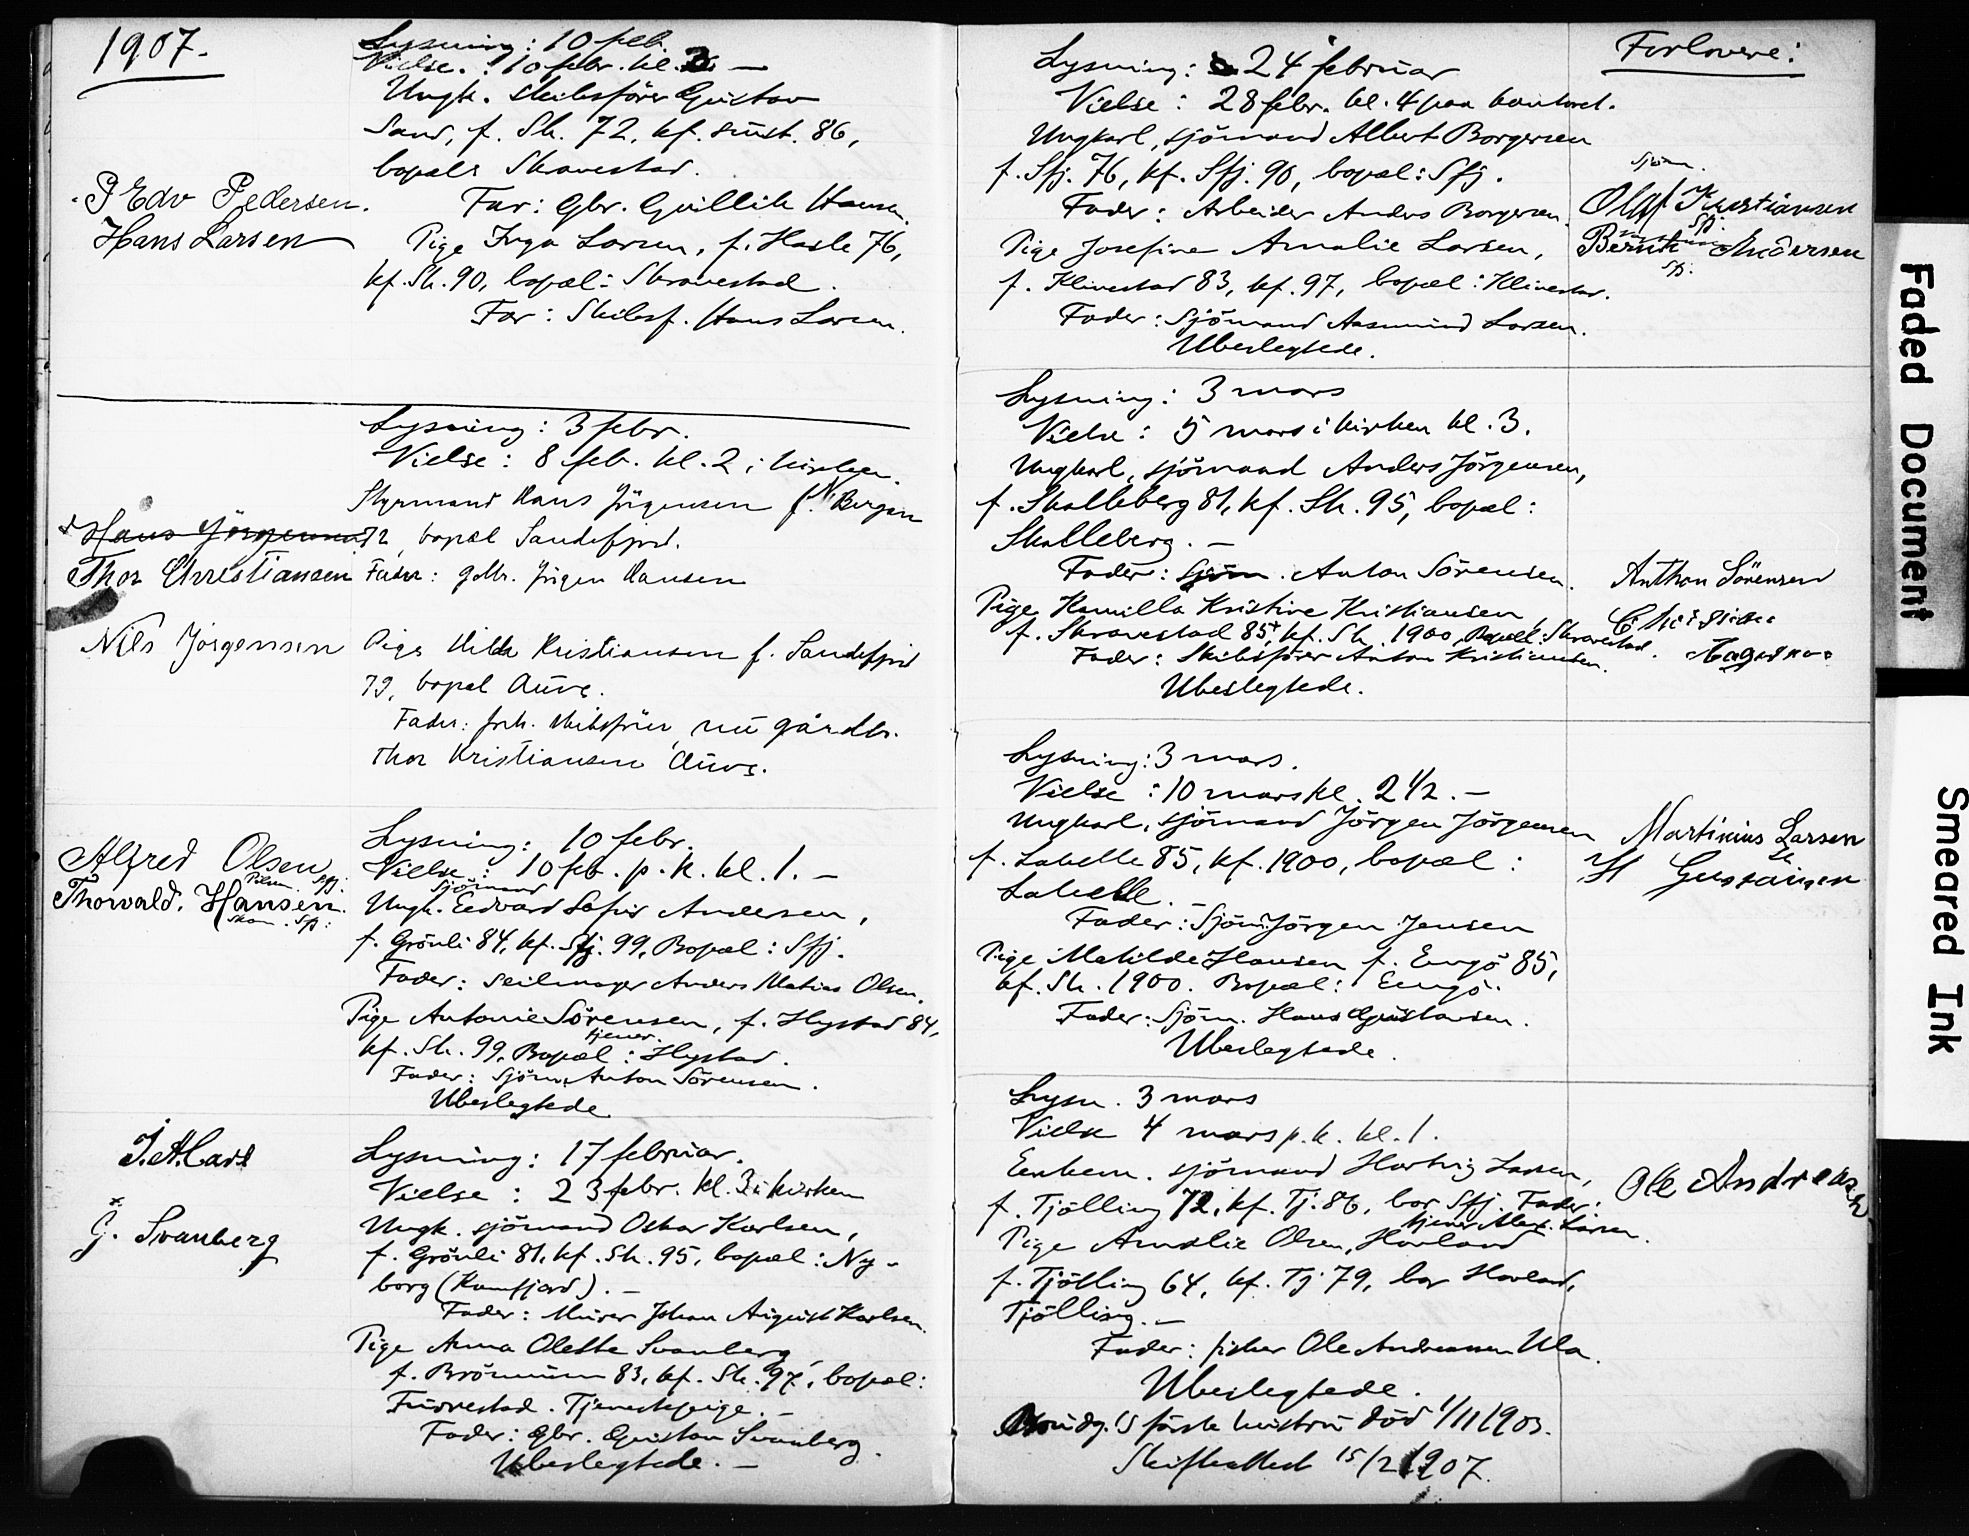 1907.
Lysning: 10 feb.
Vielse: 10 febr. kl. 2 —
Ungk. skibsfører Gustav
Sand, f. Sh. 72, kf. sinst. 86,
bopæl: Skravestad.
Far: Gbr. Gullik Hansen.
Pige Inga Larsen, f. Hasle 76,
kf. Sh. 90, bopæl: Skravestad.
Far: Skibsf. Hans Larsen.
P Edv Pedersen.
Hans Larsen
Lysning: 3 febr.
Vielse: 8 feb. kl. 2 i kirken.
Styrmand Hans Jörgensen f. N. Bergan
72, bopæl Sandefjord.
Fader: gdbr. Jörgen Hansen
Hans Jörgensen
Thor Christiansen
Nils Jörgensen
Pige Hilda Kristiansen f. Sandefjord
79, bopæl Auve.
Fader: forh. skibsfører, nu gårdbr.
Thor Kristiansen Auve.
Alfred Olsen
Sfj:
Thorvald. Hansen.
Skom. Sfj:
Lysning: 10 febr.
Vielse: 10 feb. p. k. kl. 1. —
Sjömand
Ungk. Eedvard Sofus Andersen,
f. Grönli 84, kf. Sfj. 99, Bopæl: Sfj.
Fader: Seilmager Anders Matias Olsen.
Pige Antonie Sörensen, f. Hystad 84,
tjener.
kf. Sh. 99, Bopæl: Hystad.
Fader: Sjöm. Anton Sörensen.
Ubeslegtede
J. A. Carl
G. Svanberg
Lysning: 17 februar.
Vielse: 23 febr. kl. 3 i kirken
Ungk. sjömand Oskar Karlsen,
f. Grönli 81, kf. Sh. 95, bopæl: Ny-
borg (Kamfjord). —
Fader: Murer Johan August Karlsen.
Pige Anna Olette Svanberg,
f. Brönnum 83, kf. Sh. 97, bopæl:
Furrestad. Tjenestepige. —
Fader: Gbr. Gustav Svanberg.
Ubeslegtede. —
Forlovere:
Lysning: 24 februar
Vielse: 28 febr. kl. 4 paa kontoret.
Ungkarl, sjömand Albert Borgersen
f. Sfj. 76, kf. Sfj. 90, bopæl: Sfj.
Fader: Arbeider Anders Borgersen
Pige Josefine Amalie Larsen,
f. Klinestad 83, kf. 97, bopæl: Klinestad.
Fader: Sjömand Aasmund Larsen.
Ubeslegtede.
Sjöm.
Olaf Kristiansen
Sfj.
Bernth Andersen
Sfj.
Lysning: 3 mars
Vielse: 5 mars i kirken kl. 3.
Ungkarl, sjömand Anders Jörgensen,
f. Skalleberg 81, kf. Sh. 95, bopæl:
Skalleberg. —
Fader: Sjöm. Anton Sörensen.
Pige Kamilla Kristine Kristiansen,
f. Skravestad 85, kf. Sh. 1900, Bopæl: Skravestad.
Fader: Skibsfører Anton Kristiansen.
Ubeslegtede.
Anthon Sörensen
Lysning: 3 mars.
Vielse: 10 mars kl. 2 1/2. —
Ungkarl, sjömand Jörgen Jörgensen
f. Lahelle 85, kf. 1900, bopæl:
Lahelle. —
Fader: Sjöm. Jörgen Jensen
Pige Matilde Hansen f. Engö 85,
kf. Sh. 1900. Bopæl: Engö.
Fader: Sjöm. Hans Gustavsen.
Ubeslegtede.
Martinius Larsen
H Gustavsen
Lysn. 3 mars
Vielse 4 mars p. k. kl. 1.
Enkem. sjömand Hartvig Larsen,
f. Tjölling 72, kf. Tj. 86, bor Sfj. Fader:
Larsen.
Pige Amalie Olsen, Havland
f. Tjölling 64, kf. Tj 79, bor Havland,
Tjölling. —
Fader: fisker Ole Andreassen Ula.
Ubeslegtede.
Brudg.'s förste hustru död 1/11 1903.
Skifteattest 15/2 1907.
Ole Andreasen
Faded Document
Smeared Ink